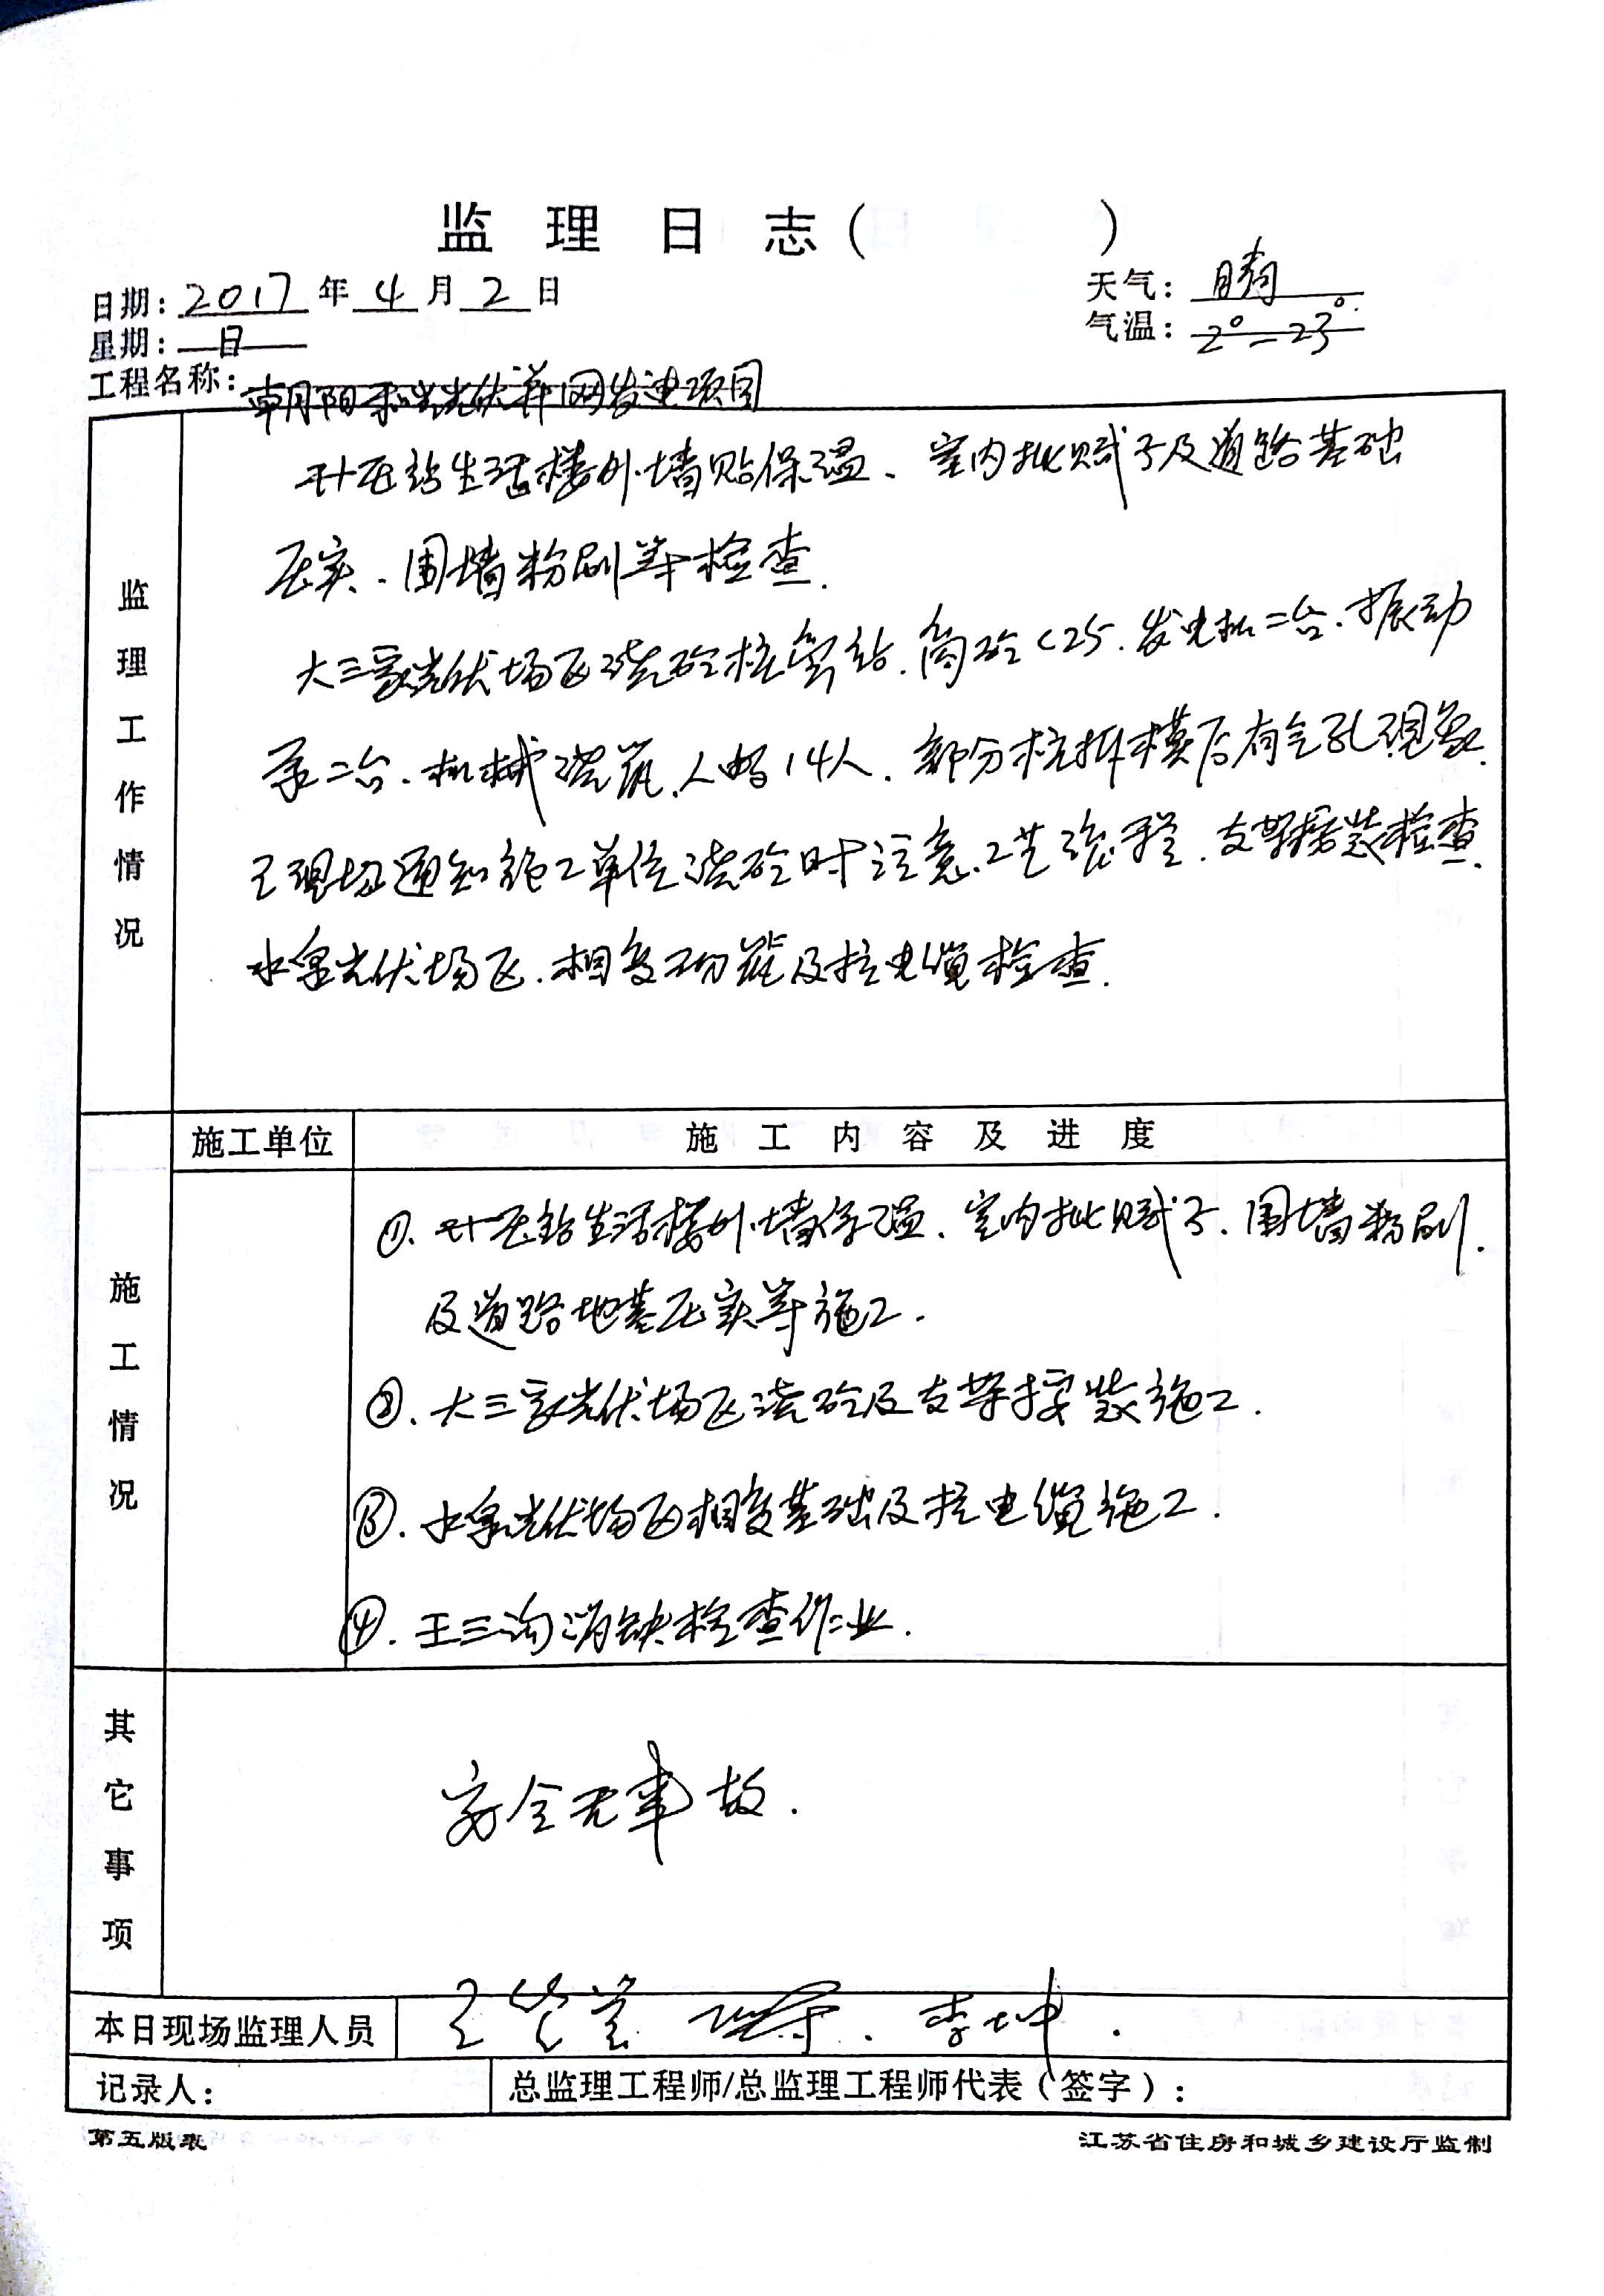 监理日志（ ）
日期：2017年4月2日 天气：晴
星期：日 气温：2°-23°.
工程名称：朝阳和光光伏并网发电项目
监理工作情况
升压站生活楼外墙贴保温、室内批赋子及道路基础
压实、围墙粉刷等检查.
大三家光伏场区浇砼柱旁站.商砼C25.发电机二台.振动
泵二台.机械浇筑.人工14人.部分柱拆模后有气孔现象.
已现场通知施工单位浇砼时注意.工艺流程.支架按装检查.
水泉光伏场区.相变 及挖电缆检查.
施工单位 施工内容及进度
施工情况
①.升压站生活楼外墙保温、室内批赋子.围墙粉刷.
及道路地基压实等施工.
②.大三家光伏场区浇砼及支架按装施工.
③.水泉光伏场区相变基础及挖电缆施工.
④.王三沟消缺检查作业.
其它事项
安全无事故.
本日现场监理人员 李坤.
记录人： 总监理工程师/总监理工程师代表（签字）：
第五版表 江苏省住房和城乡建设厅监制